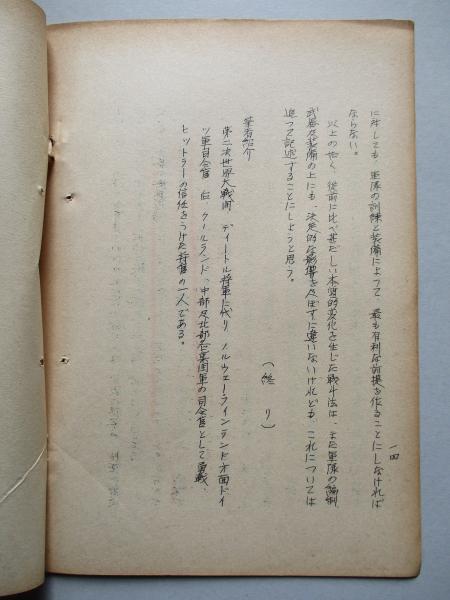 一四
に対しても、軍隊の訓練と装備によって 最も有利な前提を作ることにしなければ
ならない。
以上の如く、従前に比べ甚だしい本質的変化を生じた戦斗法は、また軍隊の編制
武器及装備の上にも、決定的な影響を及ぼすに違いないけれども、これについては
追って記述することにしようと思う。
(終り)
筆者紹介
第二次世界大戦間 ディートル将軍に代り ノルウェーラインランド方面ドイ
ツ軍司令官 クールランド、中部及北部各集団軍の司令官として勇戦、
ヒットラーの信任をうけた将官の一人である。